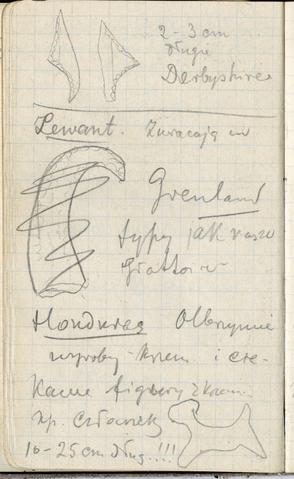 2-3 cm
długie
Derbyshire
Lewant. Zwracają uw
Grenland
typy jak nasze
Grattoir
Honduras Olbrzymie
wyroby krzem i cie-
kawe figury z krzem.
np. człowiek
10-25 cm dług. !!!